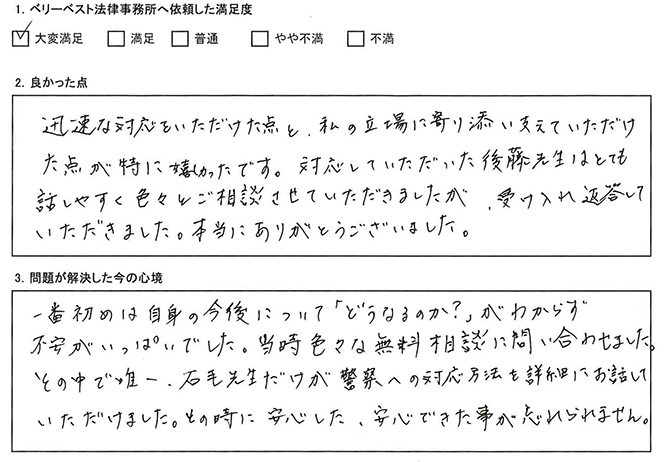 1. ベリーベスト法律事務所へ依頼した満足度
大変満足 満足 普通 やや不満 不満
2. 良かった点
迅速な対応をいただけた点と、私の立場に寄り添い支えていただけ
た点が特に嬉しかったです。対応していただいた後藤先生はとても
話しやすく色々とご相談させていただきましたが、受け入れ返答して
いただきました。本当にありがとうございました。
3. 問題が解決した今の心境
一番初めは自身の今後について「どうなるのか?」がわからず
不安がいっぱいでした。当時色々な無料相談に問い合わせました。
その中で唯一、石毛先生だけが警察への対応方法を詳細にお話して
いただけました。その時に安心した、安心できた事が忘れられません。